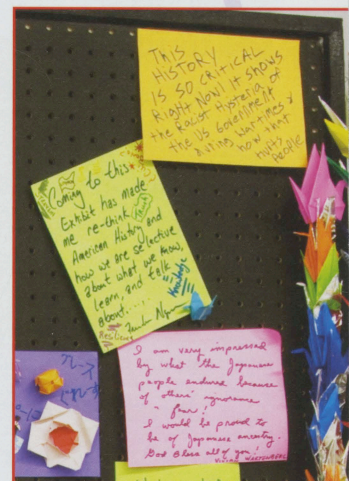 THIS
HISTORY
IS SO CRITICAL
RIGHT NOW! IT SHOWS
the RACIST HYSTERIA OF
the US GOVERNMENT
DURING WARTIMES &
how that
HURTS
PEOPLE
Coming to this
Exhibit has made
me re-think
American History and
how we are selective
about what we know,
learn, and talk
about....
Knowledge
Resilience
I am very impressed
by what the Japanese
people endured because
of others' ignorance
& fear!
I would be proud to
be of Japanese ancestry.
God Bless all of you!